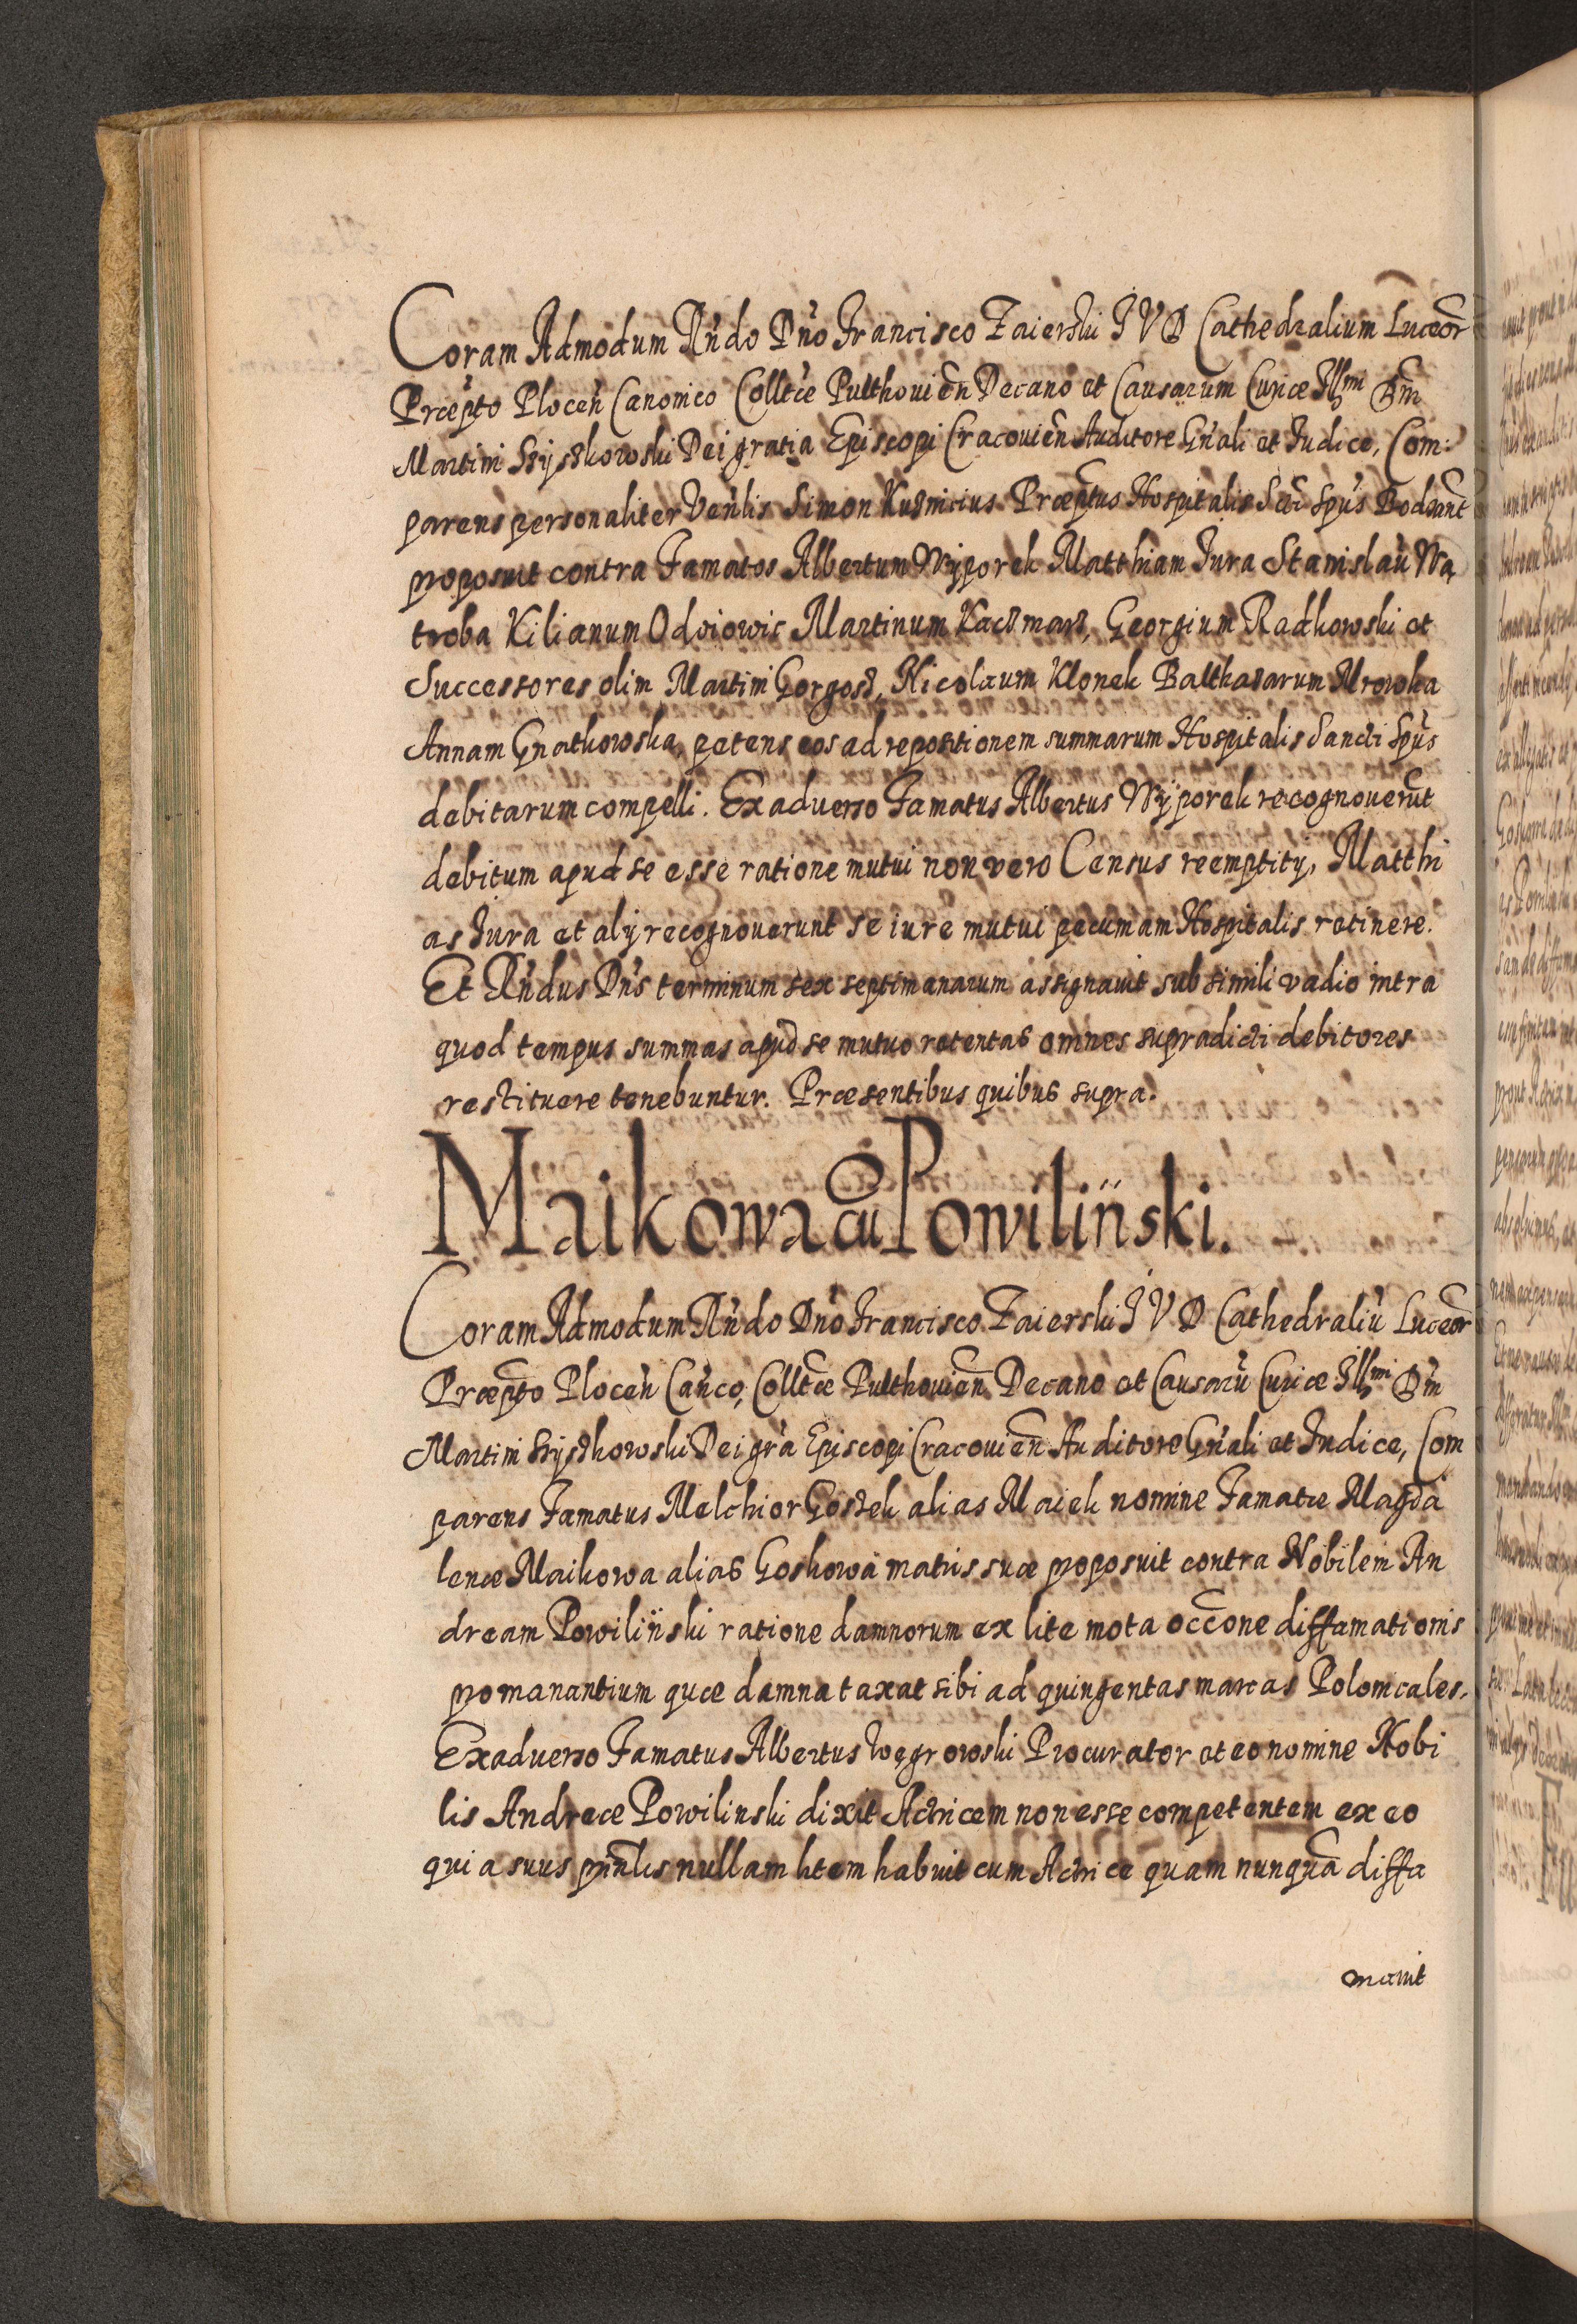 Coram Admodum Rn̄do Dn̄o Francisco Zaierski I V D Cathedralium Luceor̄
Præp̄to Plocen̄ Canonico Colltǣ Pulthouien̄ Decano et Causarum Curiæ Illmi Dn̄i
Martini Szyszkowski Dei gratia Episcopi Cracouien̄ Auditore Gn̄ali et Iudice, Com:
parens personaliter Ven̄lis Simon Kuznicius Præp̄tus Hospitalis Scī Spūs Bodzant̄
proposuit contra Famatos Albertum Wÿporek Matthiam Jura Stanislaū Wą
troba Kilianum Odoiowic Martinum Kaczmarz, Georgium Radkowski et
Successores olim Martini Gorgosz, Nicolaum Klonek Balthazarum Mrowka
Annam Gnatkowska, petens eos ad repositionem summarum Hospitalis Sancti Spūs
debitarum compelli. Exaduerso Famatus Albertus Wÿporek recognouerūt
debitum apud se esse ratione mutui non vero Census reemptity, Matthi
as Jura et alÿ recognouerunt se iure mutui pecuniam Hospitalis retinere.
Et Rn̄dus Dn̄s terminum sex septimanarum assignauit sub simili vadio intra
quod tempus summas apud se mutuo retentas omnes supradicti debitores
restituere tenebuntur. Præsentibus quibus supra.
Maikowa cū Powilin̈ski.
Coram Admodum Rn̄do Dn̄o Francisco Zaierski I V D Cathedraliū Luceor̄
Præp̄to Plocen̄ Can̄co, Colltǣ Pulthouien̄ Decano et Causarū Curiæ Illmi Dn̄i
Martini Szyszkowski Dei grā Episcopi Cracouien̄ Auditore Gn̄ali et Iudice, Com
parens Famatus Melchior Goszek alias Maiek nomine Famatæ Magda
lenæ Maikowa alias Goskowa matris suæ proposuit contra Nobilem An
dream Powilin̈ski ratione damnorum ex lite mota occōne diffamationis
promanantium quæ damna taxat sibi ad quingentas marcas Polonicales.
Exaduerso Famatus Albertus Węgrowski Procurator et eo nomine Nobi
lis Andreæ Powilinski dixit Actricem non esse competentem ex eo
quia suus prin̄lis nullam litem habuit cum Actrice quam nunquā diffa
mauit